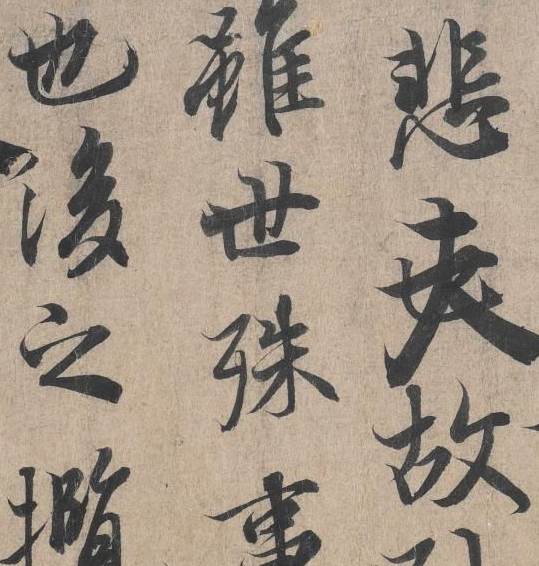 悲夫故
雖世殊事
也後之攬